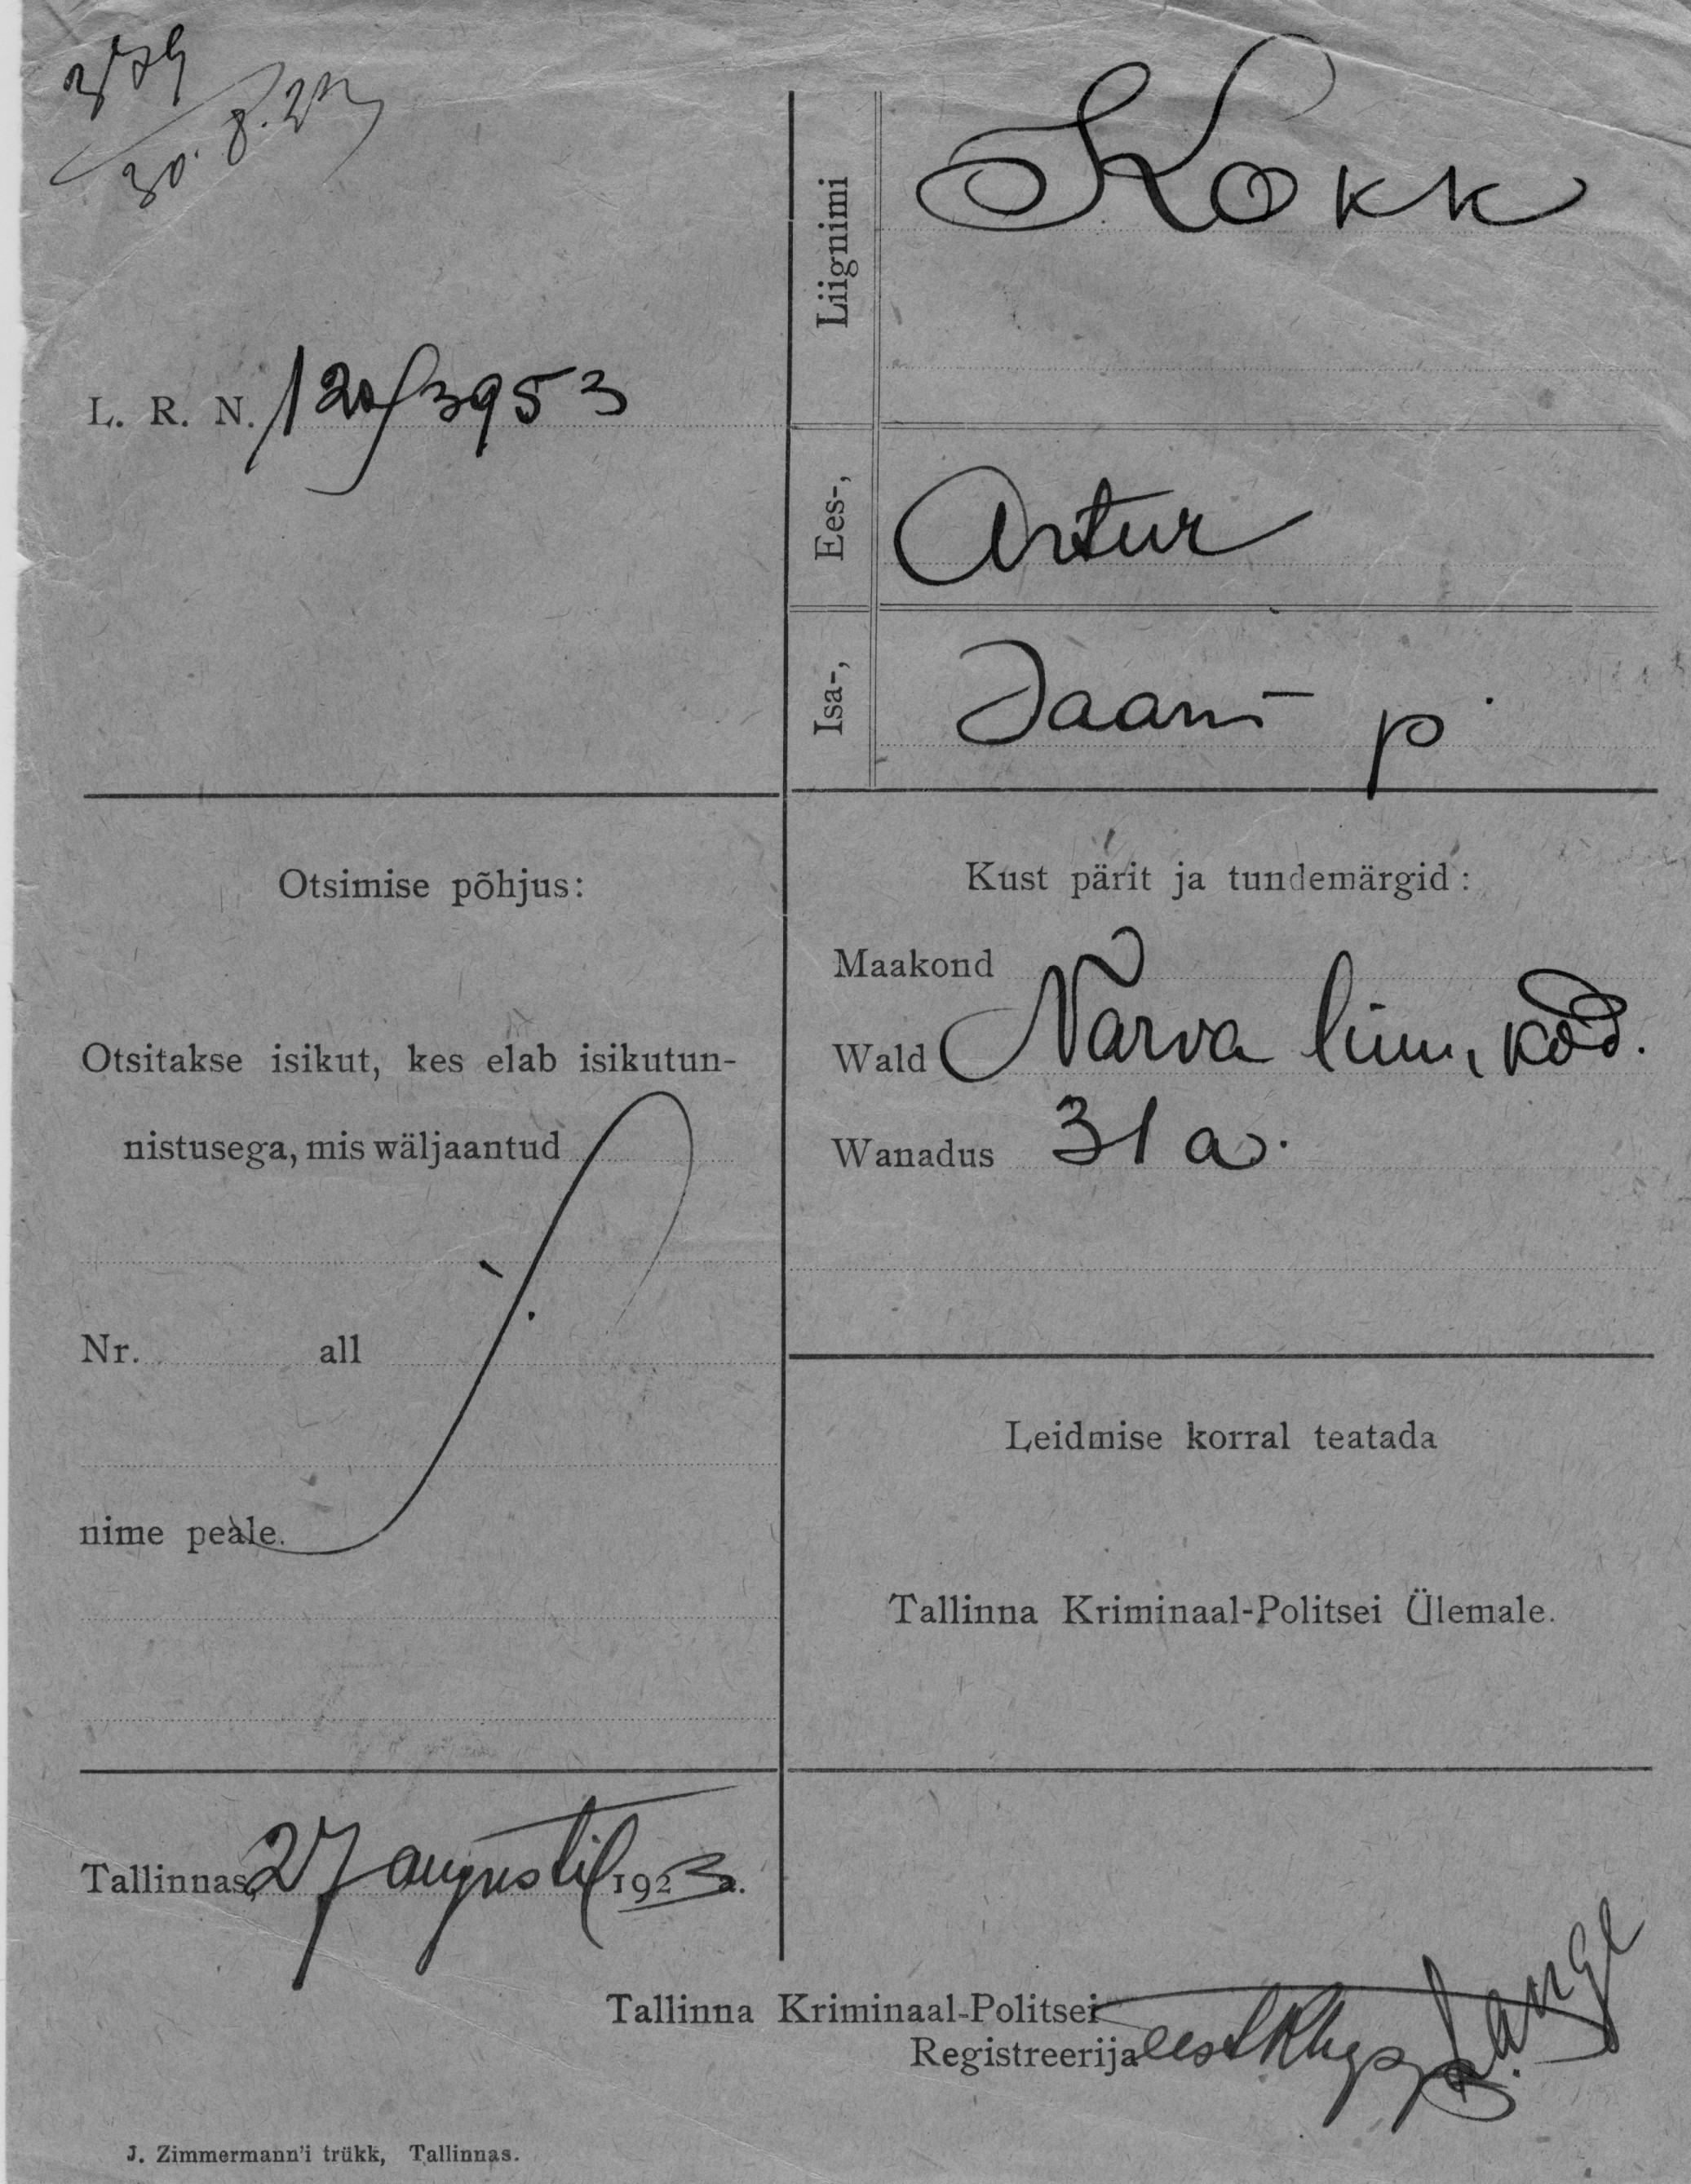 30. 8. 23
L. R. N. 120/3953
Liignimi
Kokk
Ees-,
Artur
Isa-,
Jaani p.
Otsimise põhjus:
Otsitakse isikut, kes elab isikutun-
nistusega, mis wäljaantud
Nr. all
nime peale.
Kust pärit ja tundemärgid:
Maakond
Wald Narva linn, kod.
Wanadus 31 a.
Leidmise korral teatada
Tallinna Kriminaal-Politsei Ülemale.
Tallinnas, 27 augustil 1923 a.
Tallinna Kriminaal-Politsei
Registreerija eest Lange
J. Zimmermann'i trükk, Tallinnas.